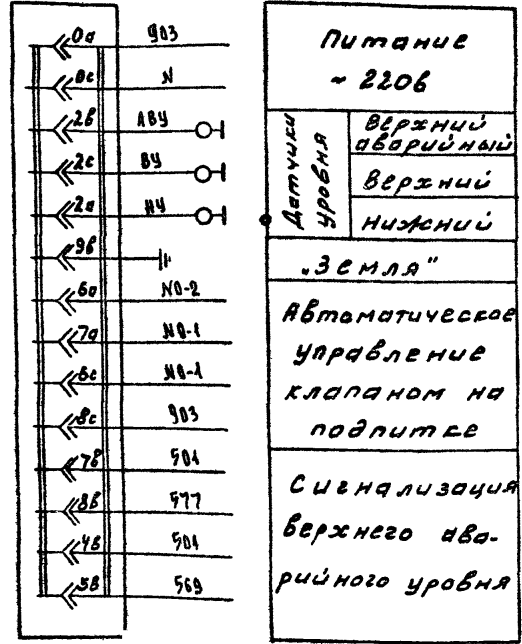 0а 903
0с N
2в АВУ
2с ВУ
2а НУ
9в
6а N0-2
7а N0-1
6с N0-1
8с 903
7в 501
8в 577
4в 501
5в 569
Питание
~ 220в
Датчики
уровня
Верхний
аварийный
Верхний
Нижний
„Земля"
Автоматическое
управление
клапаном на
подпитке
Сигнализация
верхнего ава-
рийного уровня